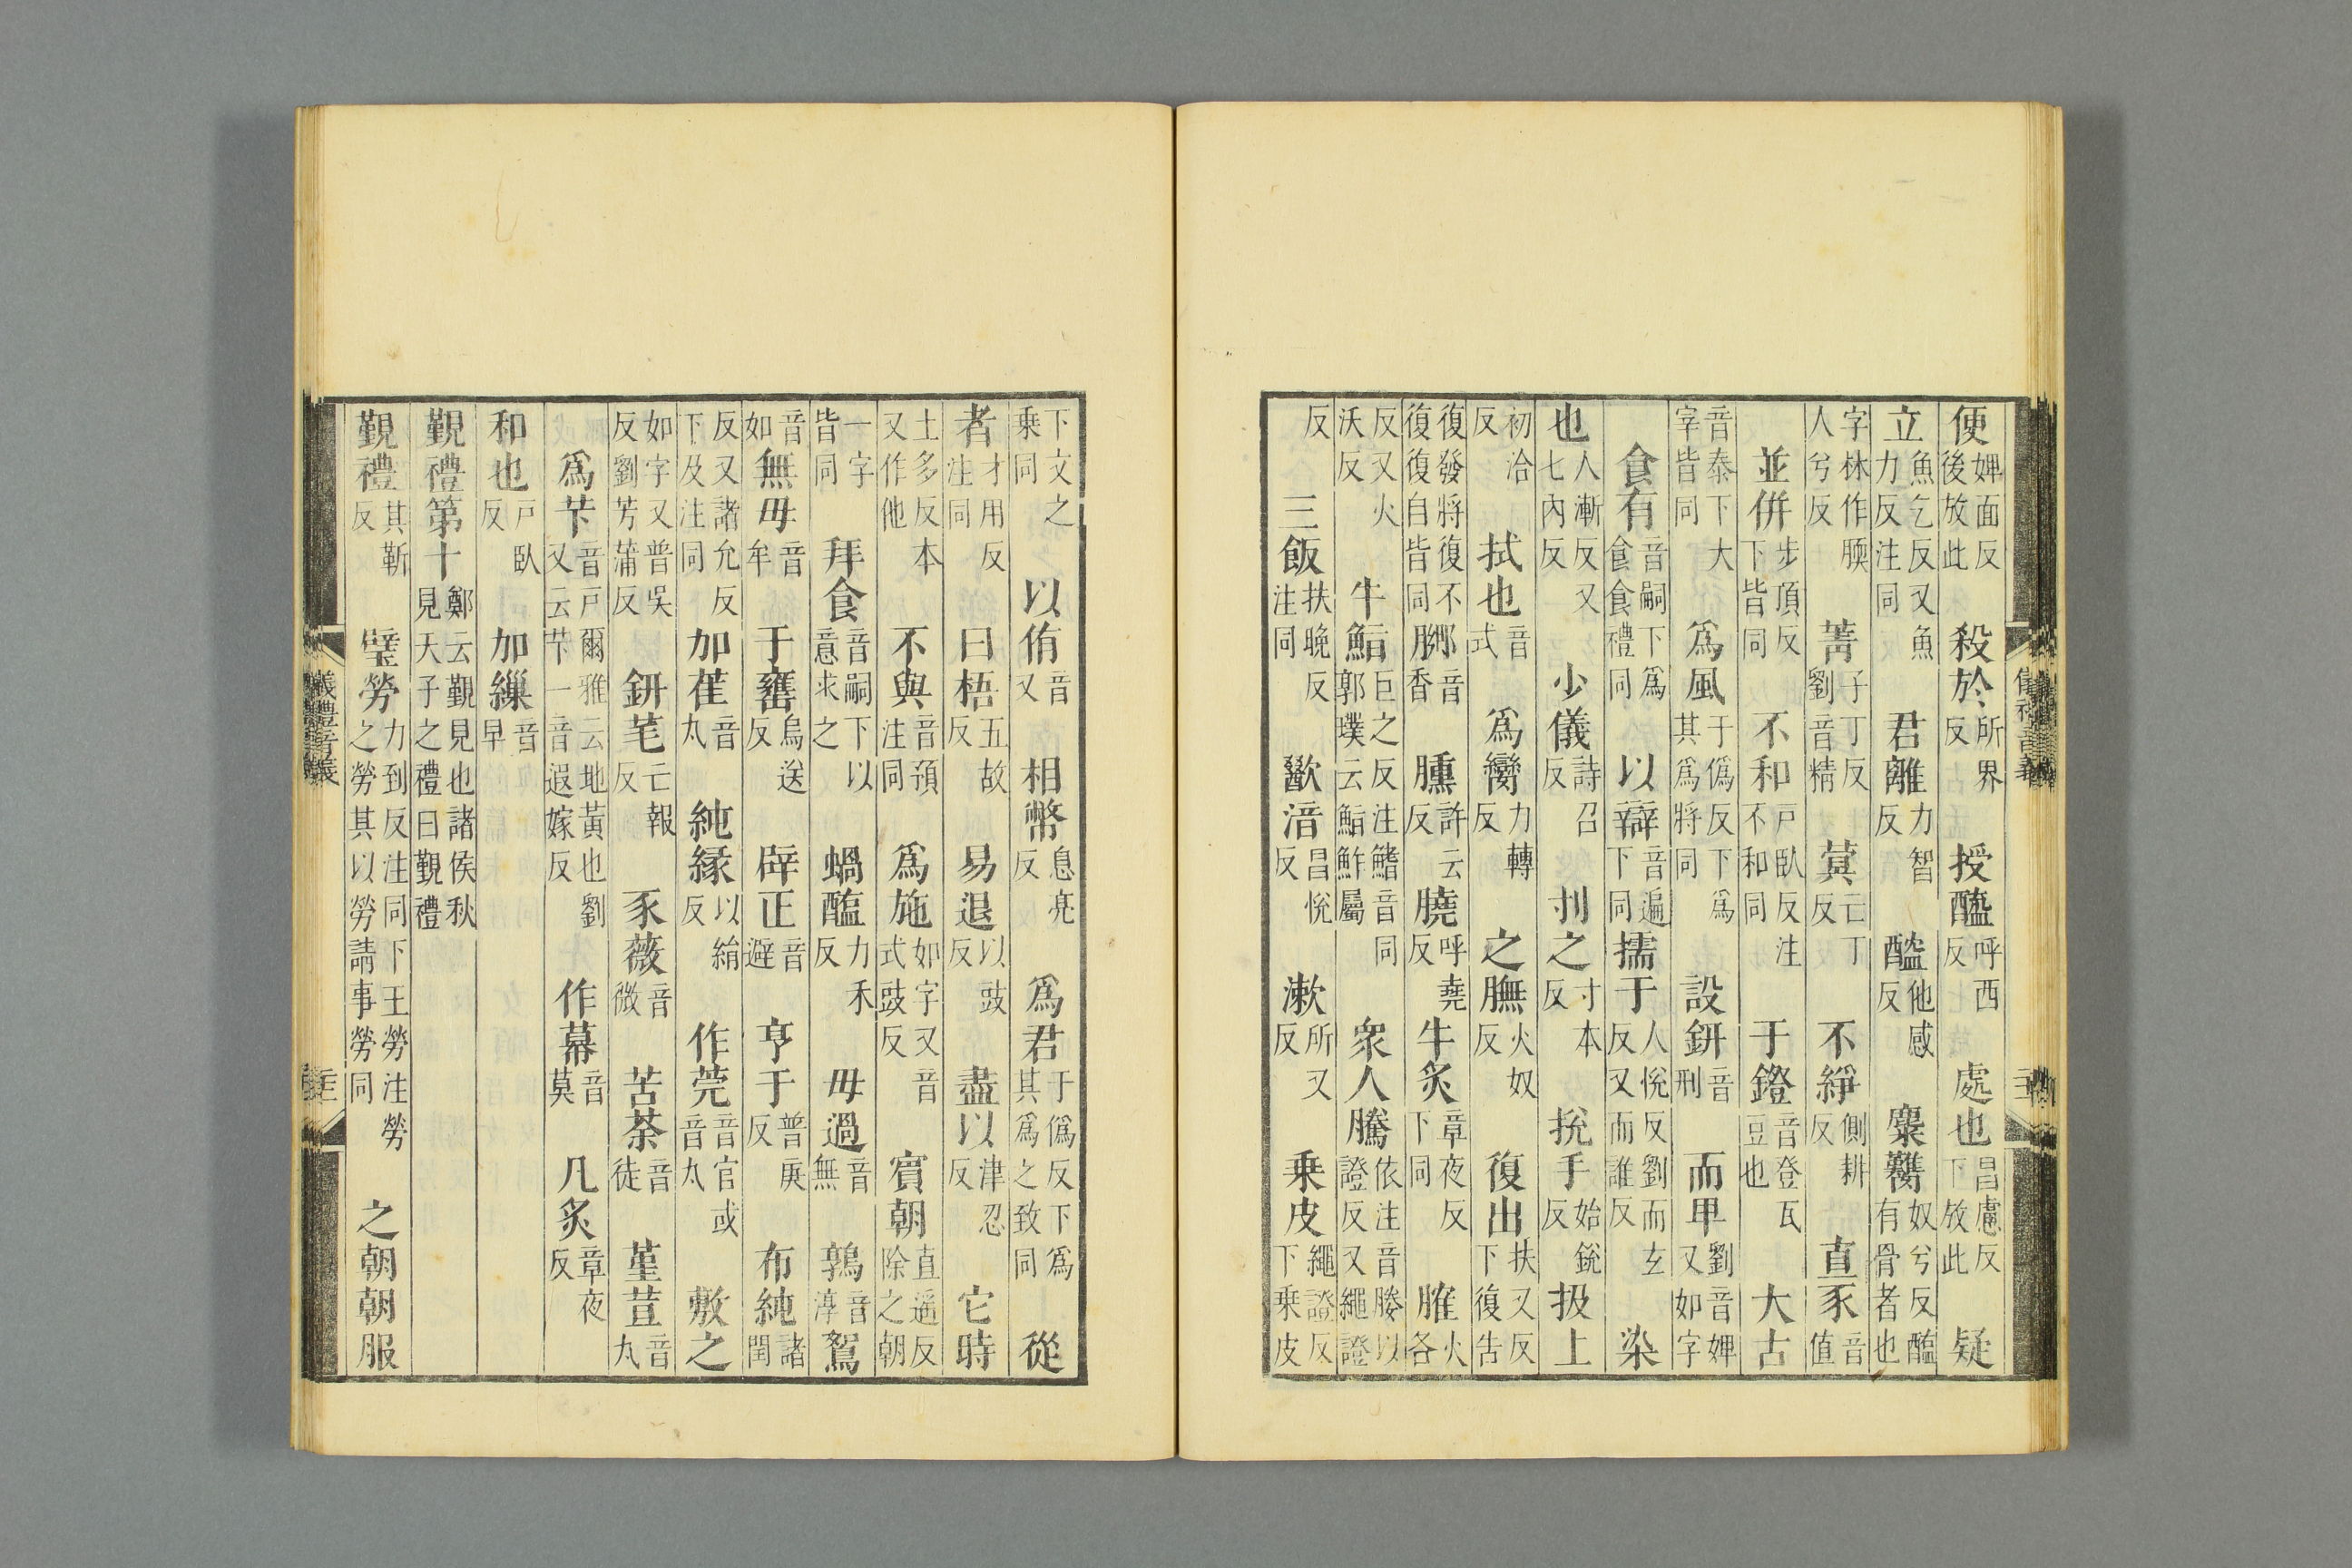 便婢面反後放此殺於所界反授醯呼西反處也昌慮反下放此疑
立魚乞反又魚力反注同君離力智反醓他感反麋臡奴兮反醢有骨者也
字林作腝人兮反菁子丁反劉音精蓂亡丁反不綪側耕反直豕音值
並併步頂反下皆同不和戶臥反注不和同于鐙音登瓦豆也大古
音泰下大宰皆同爲風于僞反下爲其爲將同設鉶音刑而卑劉音婢又如字
食有音嗣下爲食食禮同以辯音遍下同擩于人悅反劉而玄反又而誰反染
也人漸反又七內反少儀詩召反刌之寸本反挩手始銳反扱上
初洽反拭也音式爲臠力轉反之膴火奴反復出扶又反下復告
復發將復不復復自皆同膷音香臐許云反膮呼堯反牛炙章夜反下同臛火各
反又火沃反牛鮨巨之反注鰭音同郭璞云鮨鮓屬衆人騰依注音媵以證反又繩證
反三飯扶晚反注同歠湆昌悅反漱所又反乗皮繩證反下乗皮
儀禮音義
下文之乗同以侑音又相幣息亮反爲君于僞反下爲其爲之致同從
者才用反注同曰梧五故反易退以豉反盡以津忍反它時
土多反本又作他不與音預注同爲施如字又音式豉反賓朝直遥反除之朝
一字皆同拜食音嗣下以意求之蝸醢力禾反毋過音無鶉音淳鴽
音如無毋音牟于甕烏送反辟正音避亨于普庚反布純諸閏
反又諸允反下及注同加萑音丸純緣以絹反作莞音官或音丸敷之
如字又普吳反劉芳蒲反鉶芼亡報反豕薇音微苦荼音徒菫荁音丸
爲芐音戶爾雅云地黃也劉又云芐一音遐嫁反作幕音莫几炙章夜反
和也戶臥反加繅音早
覲禮第十鄭云覲見也諸侯秋見天子之禮曰覲禮
覲禮其靳反璧勞力到反注同下王勞注勞之勞其以勞請事勞同之朝朝服
儀禮音義